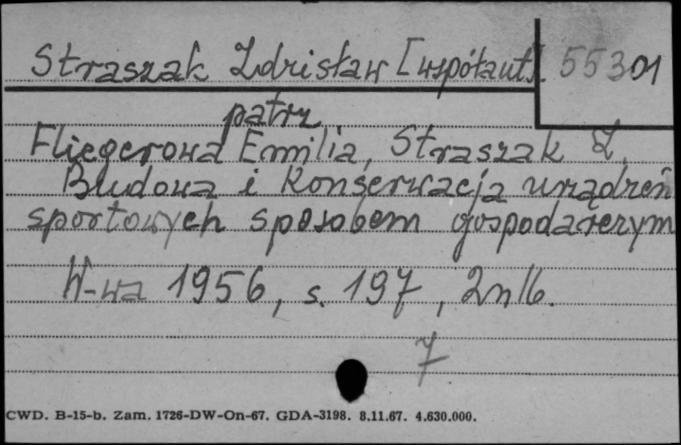 Straszak Zdzisław [współaut]. 55301
patrz
Fliegerowa Emilia, Straszak Z.
Budowa i konserwacja urządzeń
sportowych sposobem gospodarczym
W-wa 1956, s. 197, 2nlb.
7
CWD. B-15-b. Zam. 1726-DW-On-67. GDA-3198. 8.11.67. 4.630.000.